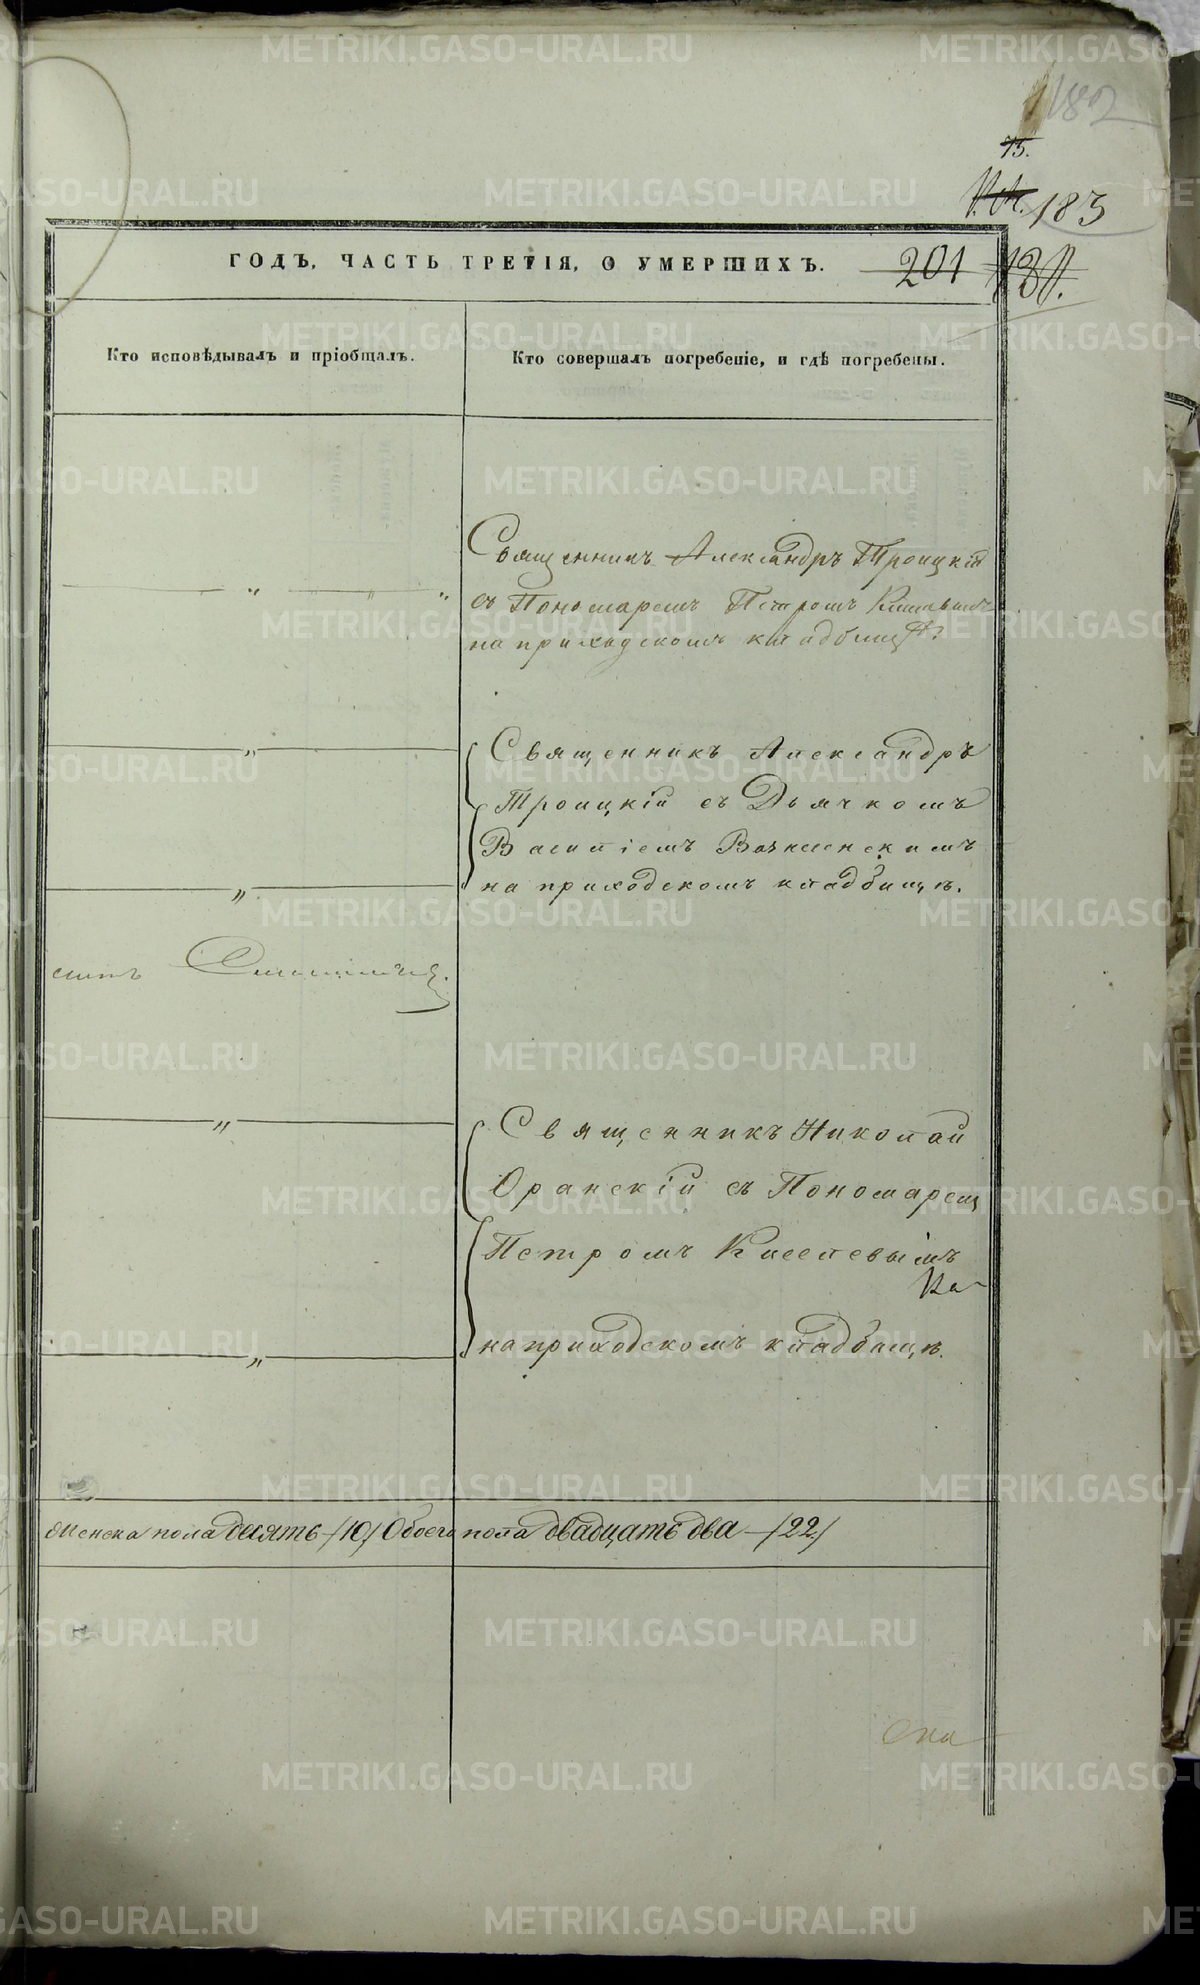 182
75.
183
ГОДЪ, ЧАСТЬ ТРЕТІЯ, О УМЕРШИХЪ.
201
Кто исповѣдывалъ и пріобщалъ.
Кто совершалъ погребеніе, и гдѣ погребены.
Священникъ Александръ Троицкій
съ Пономаремъ Петромъ Киселевымъ
на приходскомъ кладбищѣ.
Священникъ Александръ
Троицкій съ Дьячкомъ
Василіемъ Вознесенскимъ
на приходскомъ кладбищѣ.
Священникъ Николай
Оранскій съ Пономаремъ
Петромъ Киселевымъ
на приходскомъ кладбищѣ.
Женска пола десять /10/ Обоего пола двадцать два /22/
METRIKI.GASO-URAL.RU